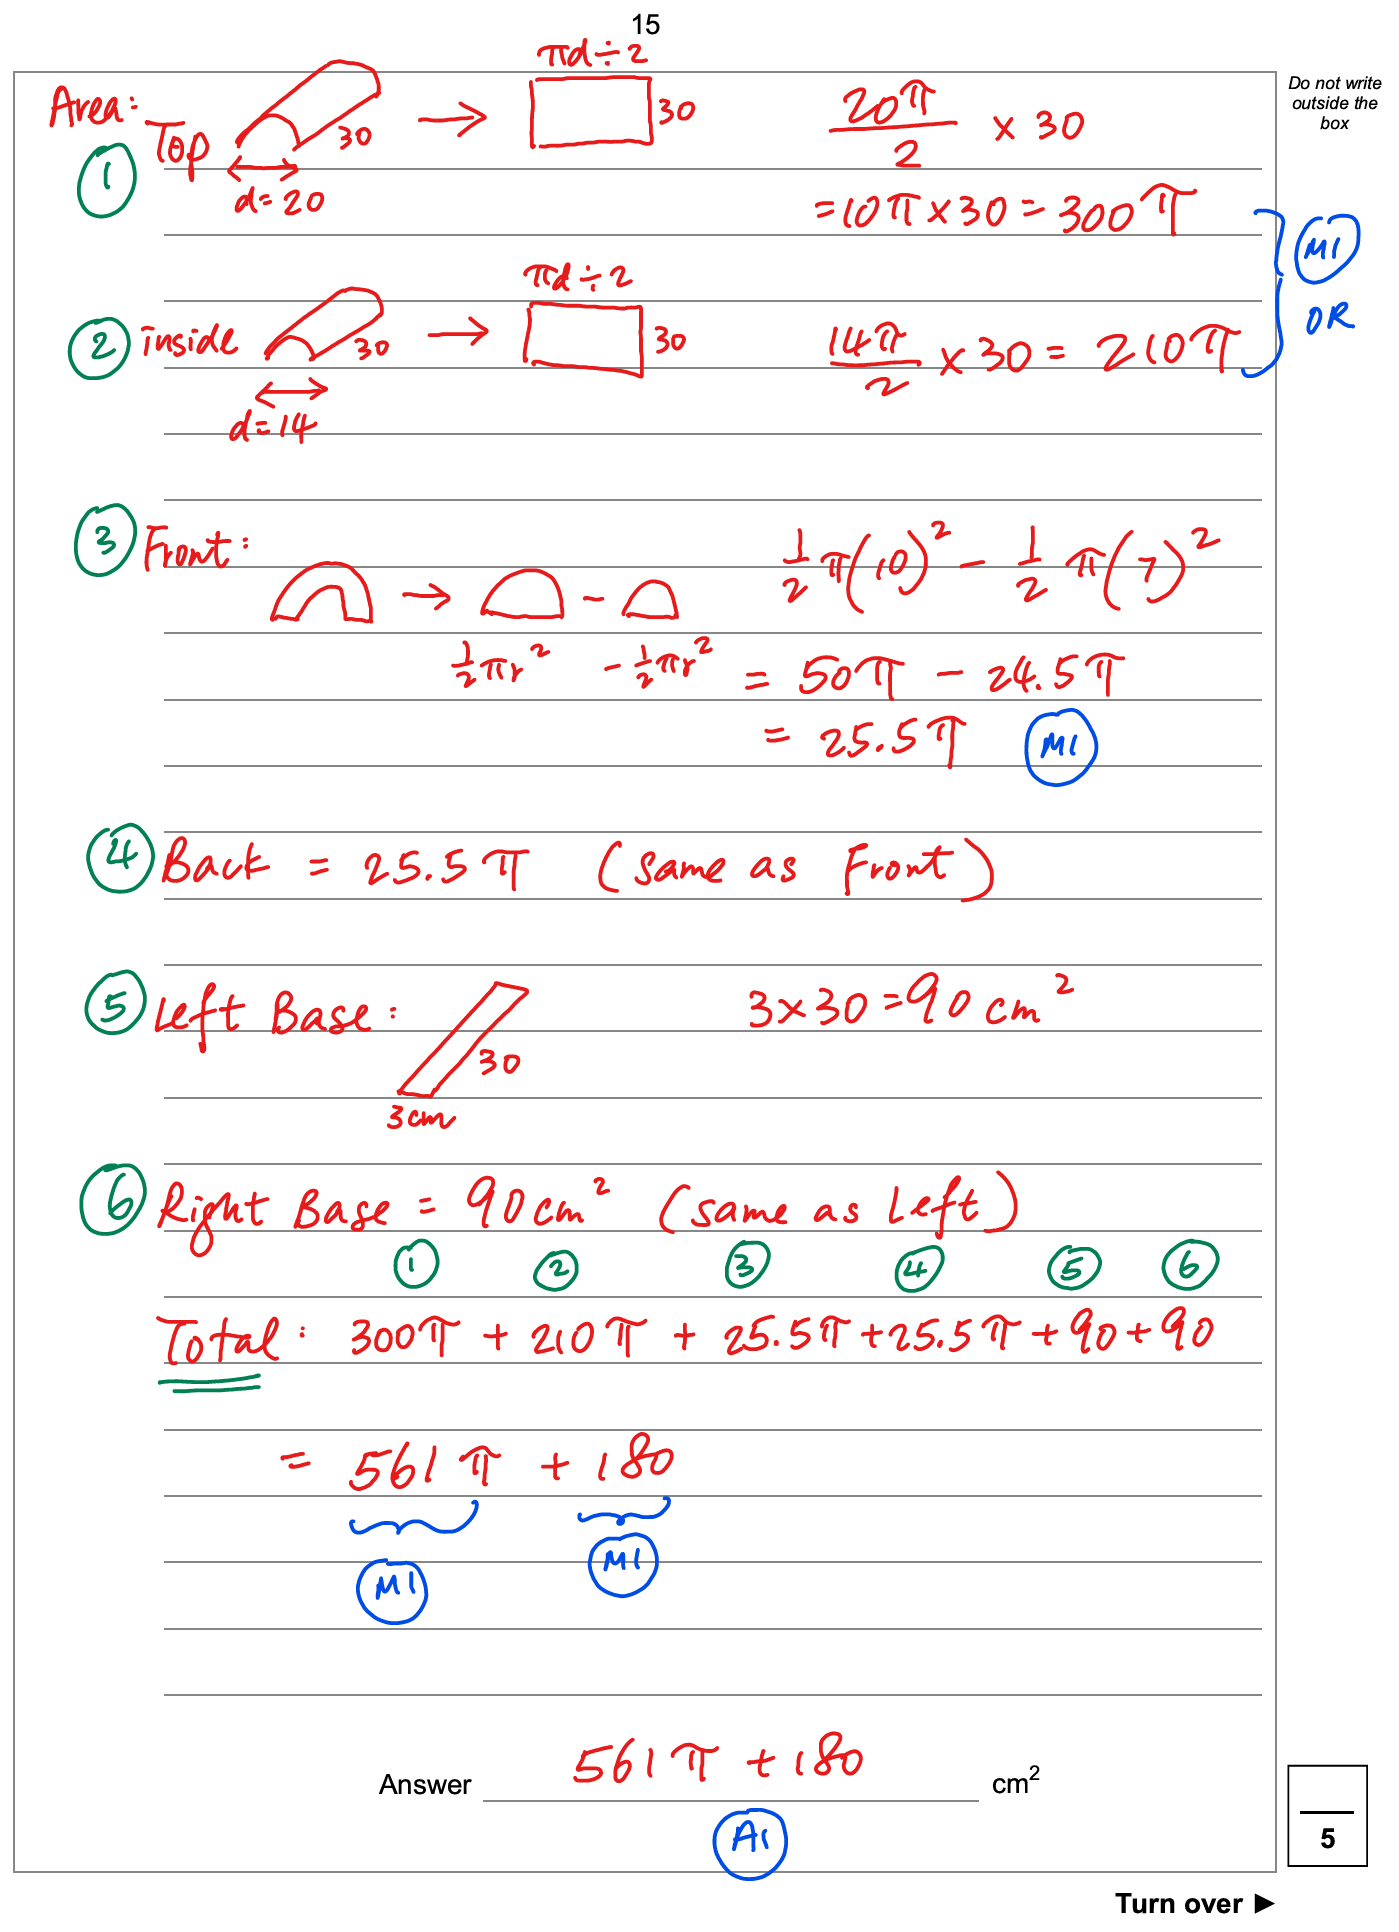 15
Do not write
outside the
box
Area:
Top
① 30
d=20
→ πd÷2
30
20π/2 × 30
=10π×30=300π
M1
OR
② inside 30
d=14
→ πd÷2
30
14π/2 × 30 = 210π
③ Front:
→ −
½πr² −½πr²
½π(10)² − ½π(7)²
= 50π − 24.5π
= 25.5π M1
④ Back = 25.5π (same as Front)
⑤ Left Base: 3×30=90cm²
30
3cm
⑥ Right Base = 90cm² (same as Left)
① ② ③ ④ ⑤ ⑥
Total: 300π + 210π + 25.5π+25.5π+90+90
= 561π + 180
M1 M1
Answer 561π+180 cm²
A1
5
Turn over ►